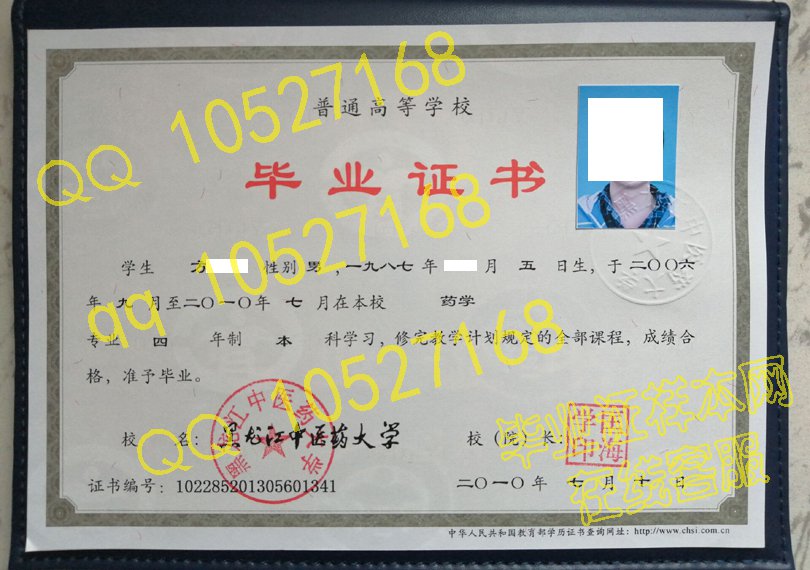 普通高等学校
毕业证书
学生 方 性别 男，一九八七年 月 五 日生，于二〇〇六
年 九 月至二〇一〇年 七 月在本校 药学
专业 四 年制 本 科学习，修完教学计划规定的全部课程，成绩合
格，准予毕业。
校 名：黑龙江中医药大学
校（院）长：
证书编号：102285201305601341
二〇一〇年 七 月 十 日
中华人民共和国教育部学历证书查询网址：http://www.chsi.com.cn
黑龙江中医药大学
国海学印
QQ 10527168
qq 10527168
QQ 10527168
毕业证样本网
在线客服